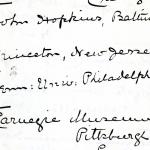 John Hopkins, Baltim
Princeton, New Jerse
Penn: Univ: Philadelph
Carnegie Museum
Pittsburgh